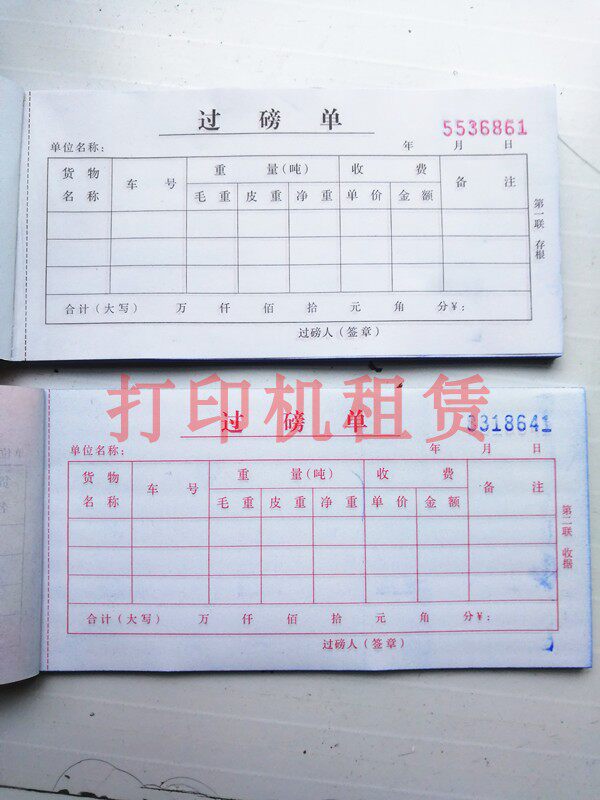 过磅单
5536861
单位名称： 年 月 日
货物名称 车号 重量(吨) 收费 备注
毛重 皮重 净重 单价 金额
第一联 存根
合计(大写) 万 仟 佰 拾 元 角 分¥：
过磅人(签章)
打印机租赁
过磅单
3318641
单位名称： 年 月 日
货物名称 车号 重量(吨) 收费 备注
毛重 皮重 净重 单价 金额
第二联 收据
合计(大写) 万 仟 佰 拾 元 角 分¥：
过磅人(签章)